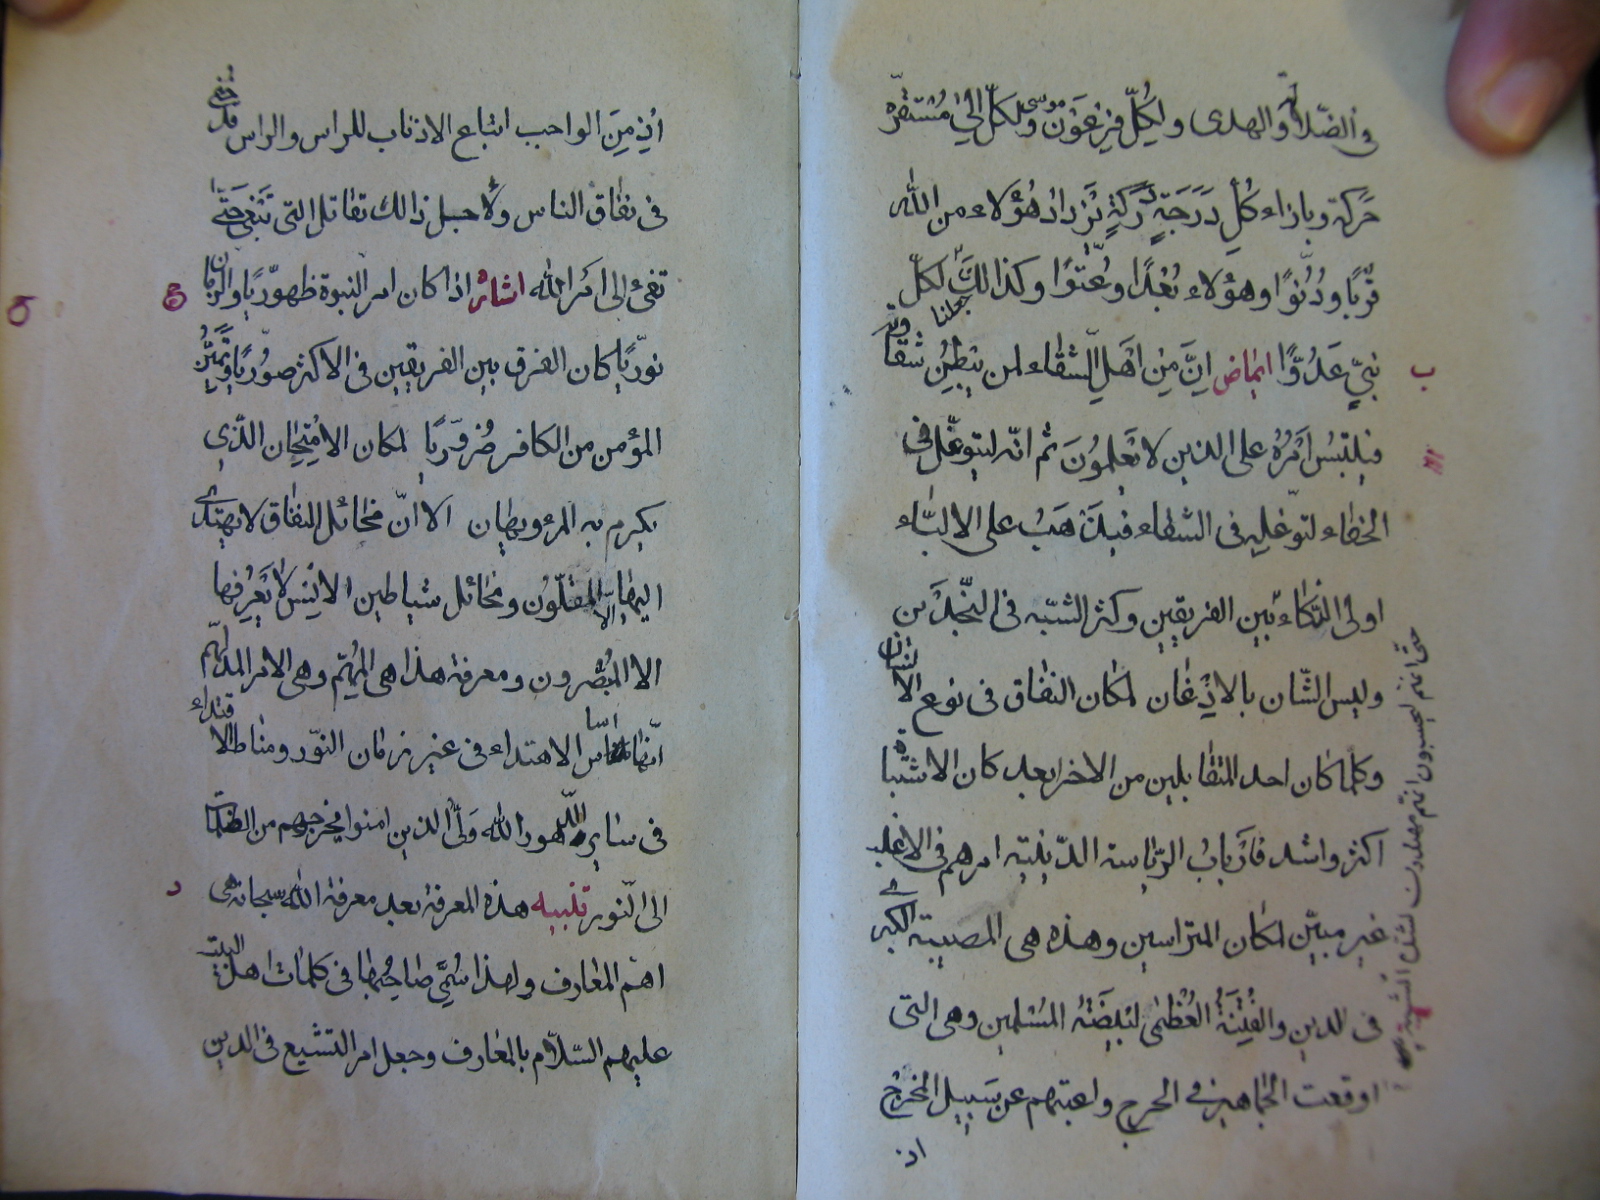 في الضّلالة والهدى ولِكُلِّ فِرْعَوْن موسى ولكلّ الى مُسْتَقَرّه
حَركة وبازاء كُلِّ دَرَجَةٍ دَركةٍ تَزداد هُؤلاء من الله
قُربًا ودُنُوًا وهؤلاء بُعْدًا وعُتُوًا وكذالك جعلنا لكلّ
نبيّ عَدُوًّا ايماض اِنَّ مِنْ اَهْلِ الشقاء لمن يُبْطِنُ شقاوته
فيلتبسُ اَمْرُهُ على الذين لا يَعْلمُونَ ثم انّه ليتوغّل في
الخفاء لتوغّله في الشقاء فيذهَبُ على الالبّاء
اولى الذكاء بين الفريقين وكثر الشبّه في النجدَين
وليس الشان بالاذعان لمكان النفاق في نوع الانسان
وكلما كان احد المتقابلين من الاخر ابعد كان الاشتباه
اكثر واشد فاَرْبابُ الرّياسة الدّينيّة امرهم في الاغلب
غير مبيّن لمكان المتراسين وهذه هي المصيبة الكبرى
في الدين والفِتنةُ العُظمى لبَيضَة المُسْلمين وهي التي
اوقعت الجماهير في الحرج واعمتهم عن سَبيل المخرَج
اذ
ب
اِذ مِنَ الواجب اتباع الاذناب للراس والراس قد خفي
في نفاق الناس ولأجل ذالك تقاتل التي تَبْغى حَتّى
تفئ الى امر الله اشارة اذا كان امر النبوة ظهوريًا والزمان
نوريًا كان الفرق بين الفريقين في الاكثر صوريًا وتميّز
المؤمن من الكافر ضروريًا لمكان الامتحان الذي
يكرم به المرء ويهان الا انّ مخائل النفاق لا يهتدى
اليها الّا المقلّون ومخائل شياطين الانس لا يَعْرِفها
الا المبصرون ومعرفة هذا هي المُهِمّ وهي الامر المدلهم
انها اساس الاهتداء في غير زمان النور ومناط الاقتداء
في سايره الدهور الله وَلىّ الذين امنوا يخرجهم من الظلمات
الى النور تنبيه هذه المعرفة بعد معرفة الله سبحانه هي
اهم المعارف ولهذا سُمِّىَ صاحبُها في كلمات اهل البيت
عليهم السّلام بالعارف وجعل امر التشيع في الدين